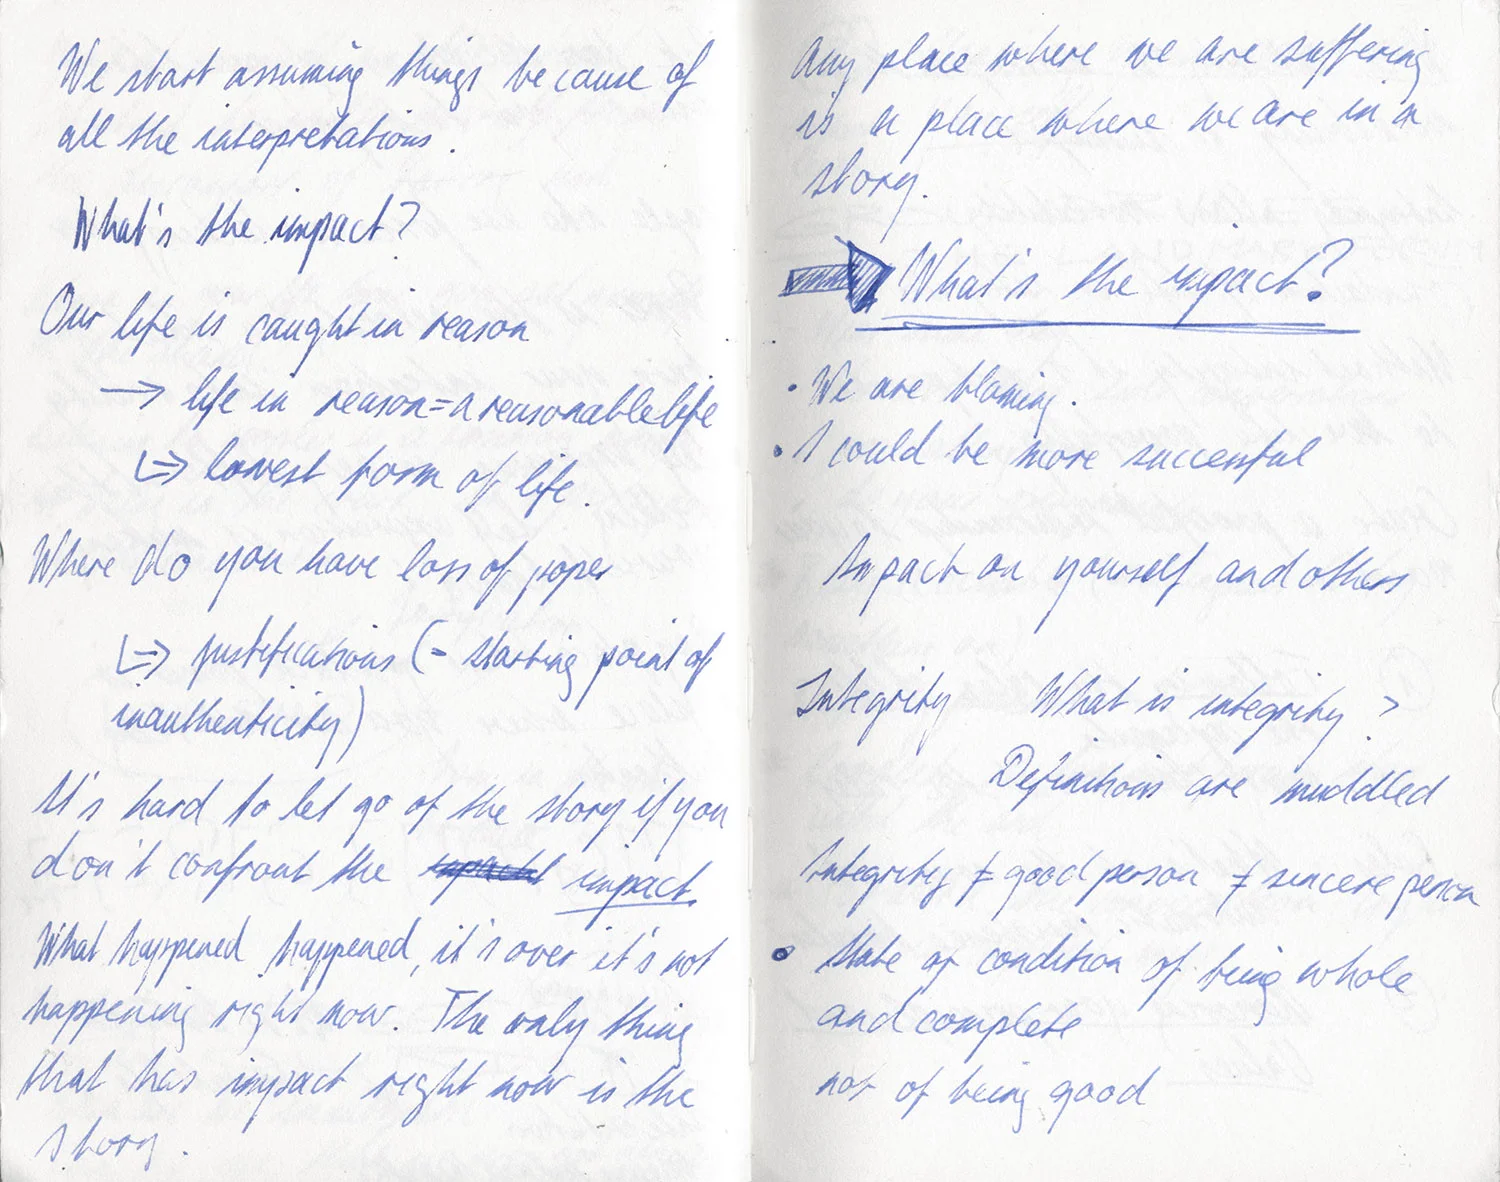 We start assuming things because of
all the interpretations.
What's the impact?
Our life is caught in reason
→ life in reason = a reasonable life
↳ lowest form of life.
Where do you have loss of
↳ justifications (= starting point of
inauthenticity)
It's hard to let go of the story if you
don't confront the impact
What happened happened, it's over it's not
happening right now. The only thing
that has impact right now is the
story.
Any place where we are suffering
is a place where we are in a
story.
What's the impact?
• We are blaming.
• I could be more successful
Impact on yourself and others
Integrity What is integrity?
Definitions are muddled
Integrity ≠ good person ≠ sincere person
• State or condition of being whole
and complete
not of being good